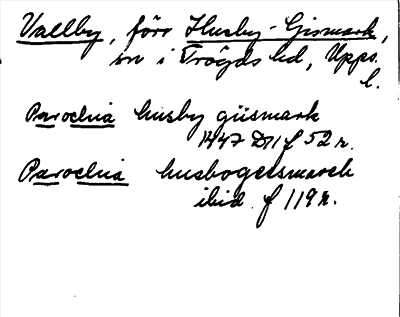 Vallby, förr Husby-Gismark,
sn i Trögds hd, Upps.
l.
Parochia husby giismark
1447 D11 f 52 r.
Parochia husbogeesmarch
ibid. f 119 r.